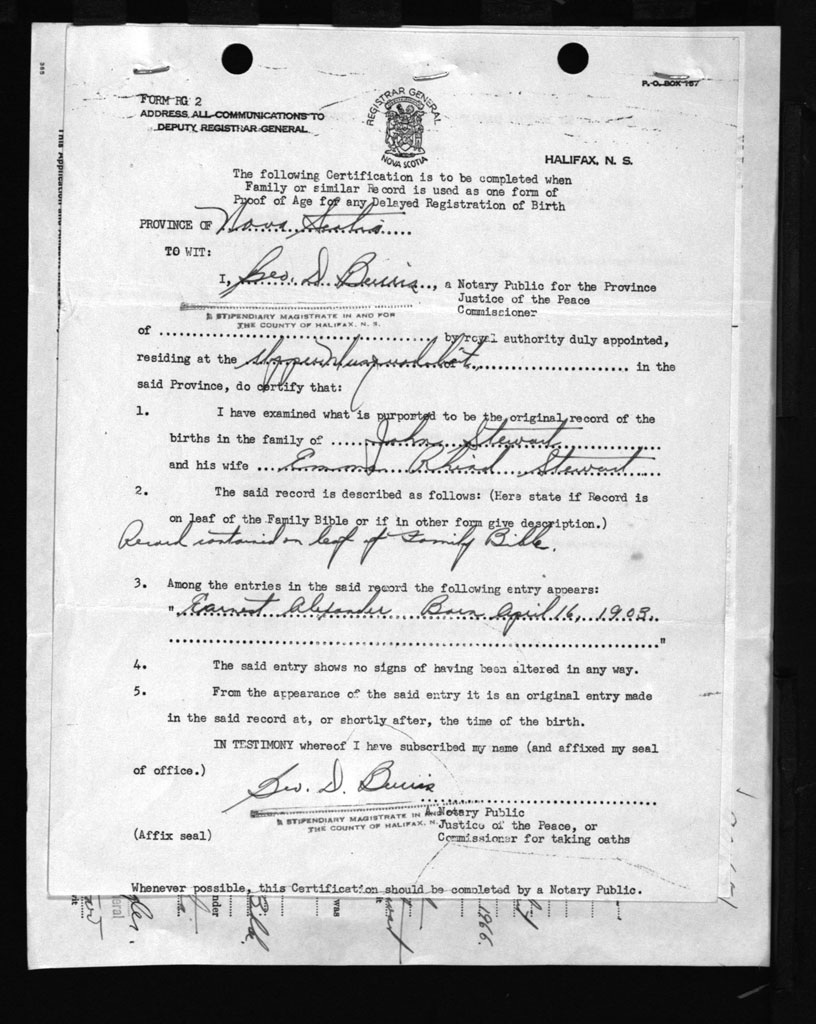 P. O. BOX 157
FORM RG 2
ADDRESS ALL COMMUNICATIONS TO
DEPUTY REGISTRAR GENERAL
REGISTRAR GENERAL
NOVA SCOTIA
HALIFAX, N. S.
The following Certification is to be completed when
Family or similar Record is used as one form of
Proof of Age for any Delayed Registration of Birth
PROVINCE OF Nova Scotia
TO WIT:
I, Geo. D. Burris, a Notary Public for the Province
Justice of the Peace
Commissioner
STIPENDIARY MAGISTRATE IN AND FOR
THE COUNTY OF HALIFAX, N. S.
of by royal authority duly appointed,
residing at the Upper Musquodoboit in the
said Province, do certify that:
1. I have examined what is purported to be the original record of the
births in the family of John Stewart
and his wife Stewart
2. The said record is described as follows: (Here state if Record is
on leaf of the Family Bible or if in other form give description.)
Record contained on leaf of Family Bible.
3. Among the entries in the said record the following entry appears:
" Earnest Alexander Born April 16, 1903.
"
4. The said entry shows no signs of having been altered in any way.
5. From the appearance of the said entry it is an original entry made
in the said record at, or shortly after, the time of the birth.
IN TESTIMONY whereof I have subscribed my name (and affixed my seal
of office.)
Geo. D. Burris
A Notary Public
STIPENDIARY MAGISTRATE IN AND
THE COUNTY OF HALIFAX, N.
Justice of the Peace, or
(Affix seal) Commissioner for taking oaths
Whenever possible, this Certification should be completed by a Notary Public.
was
1966